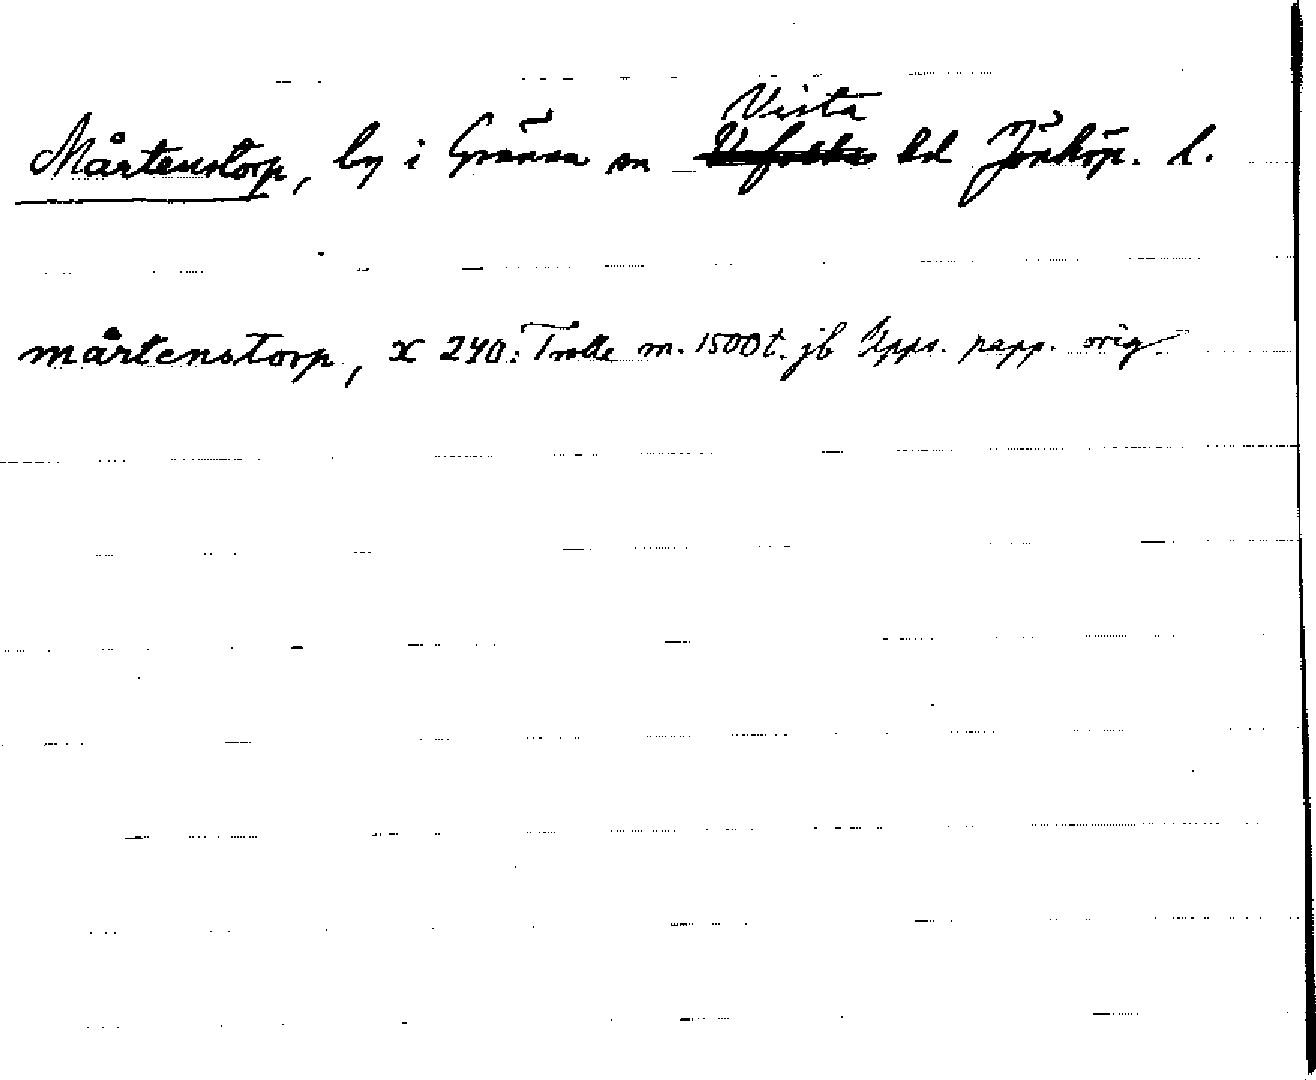 Vista
Mårtenstorp, by i Gränna sn hd Jönköp. l.
mårtenstorp, x 240: Trolle m. 1500t. jb Upps. papp. orig.